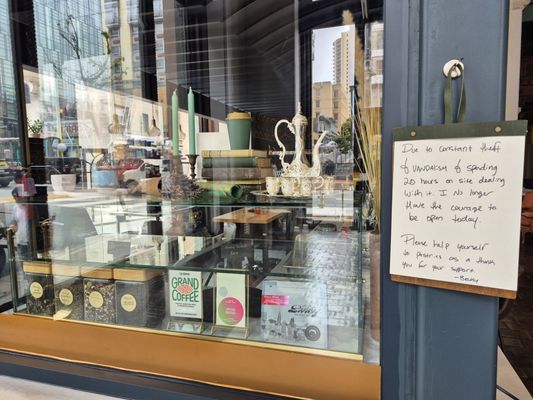 Due to constant theft
& VANDALISM & spending
20 hours on site dealing
with it. I no longer
Have the courage to
be open today.
Please help yourself
to pastries as a thank
you for your support.
-Becky
GRAND
COFFEE